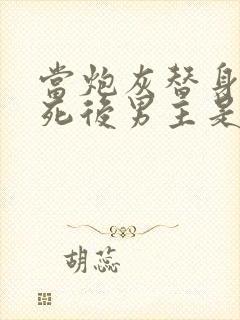 當炮灰替身
死後男主是
胡蕊